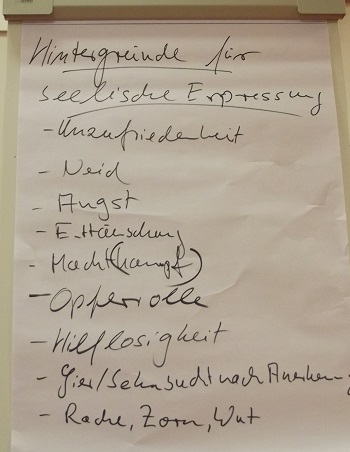 Hintergründe für
seelische Erpressung
- Unzufriedenheit
- Neid
- Angst
- Enttäuschung
- Macht(kampf)
- Opferrolle
- Hilflosigkeit
- Gier/Sehnsucht nach Anerkenng
- Rache, Zorn, Wut